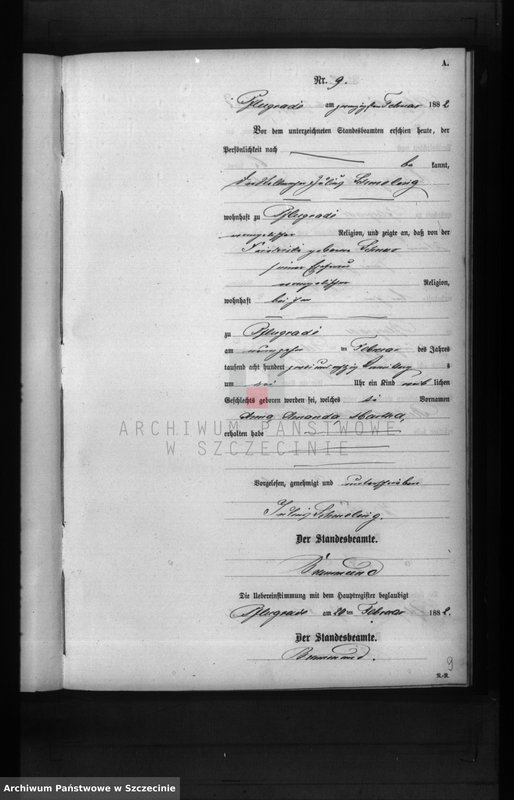 A.
Nr. 9.
Pflugrade am zwanzigsten Februar 1882
Vor dem unterzeichneten Standesbeamten erschien heute, der
Persönlichkeit nach be kannt,
Julius Schmeling
wohnhaft zu Pflugrade
evangelischer Religion, und zeigte an, daß von der
geborene
seiner Ehefrau
evangelischer Religion,
wohnhaft bei ihm
zu Pflugrade
am neunzehn ten Februar des Jahres
tausend acht hundert zwei und achtzig Vormittags
um Uhr ein Kind weib lichen
Geschlechts geboren worden sei, welches die Vornamen
Anna Amanda Martha,
erhalten habe
ARCHIWUM PAŃSTWOWE
W SZCZECINIE
Vorgelesen, genehmigt und unterschrieben
Julius Schmeling.
Der Standesbeamte.
Die Uebereinstimmung mit dem Hauptregister beglaubigt
Pflugrade am 20 ten Februar 1882.
Der Standesbeamte.
9
Archiwum Państwowe w Szczecinie